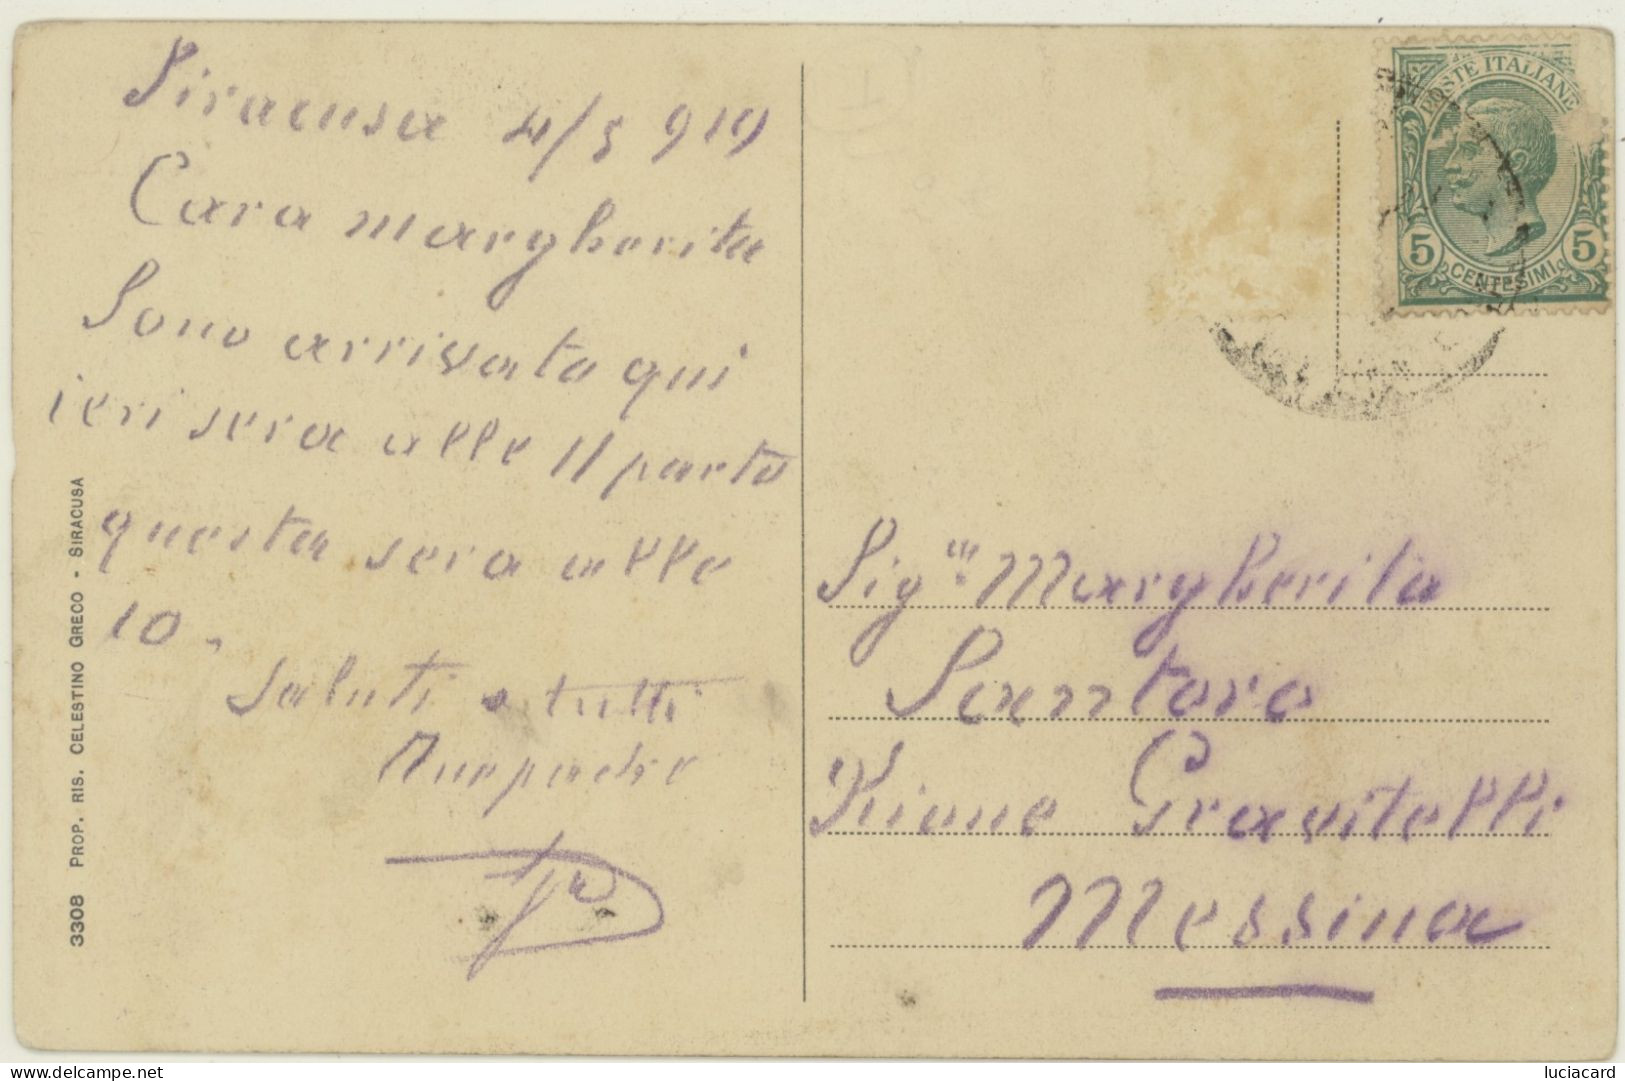 Siracusa 4/5 919
Cara Margherita
Sono arrivata qui
ieri sera alle 11 parto
questa sera alle
10.
Saluti a tutti
3308 PROP. RIS. CELESTINO GRECO - SIRACUSA
POSTE ITALIANE
5 5
CENTESIMI
Sig.na Margherita
Santoro
Rione Gravitelli
Messina
delcampe.net
luciacard